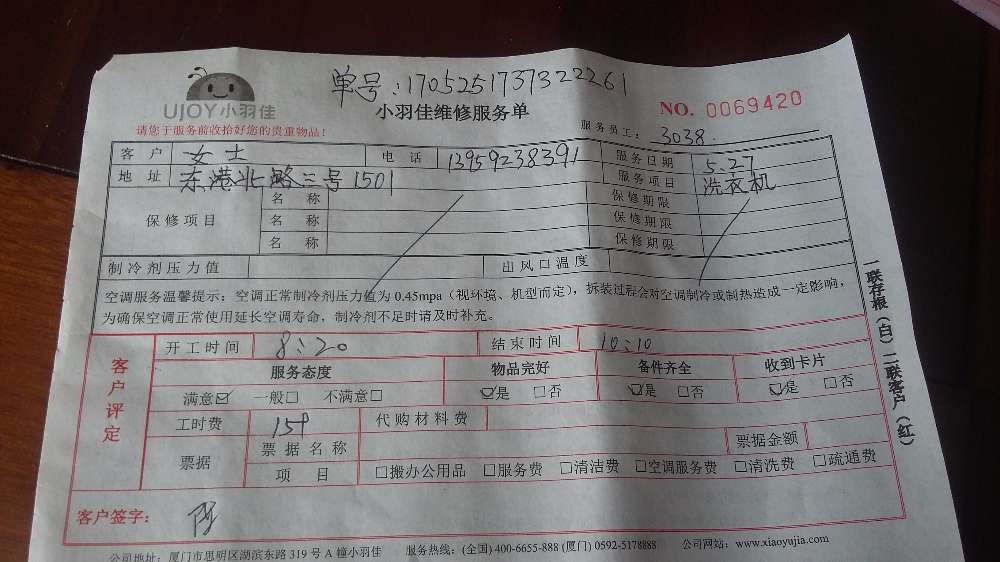 单号:1705251737322261
UJOY小羽佳
小羽佳维修服务单
NO. 0069420
请您于服务前收拾好您的贵重物品!
服务员工: 3038
客户 女士 电话 13959238391 服务日期 5.27
地址 东港北路三号1501 服务项目 洗衣机
保修项目 名称 保修期限
名称 保修期限
名称 保修期限
制冷剂压力值 出风口温度
空调服务温馨提示:空调正常制冷剂压力值为0.45mpa(视环境、机型而定),拆装过程会对空调制冷或制热造成一定影响,
为确保空调正常使用延长空调寿命,制冷剂不足时请及时补充。
客户评定
开工时间 8:20 结束时间 10:10
服务态度 物品完好 备件齐全 收到卡片
满意☑ 一般□ 不满意□ ☑是 □否 ☑是 □否 ☑是 □否
工时费 代购材料费
票据 票据名称 票据金额
项目 □搬办公用品 □服务费 □清洁费 □空调服务费 □清洗费 □疏通费
客户签字:
公司地址:厦门市思明区湖滨东路319号A幢小羽佳 服务热线:(全国)400-6655-888 (厦门)0592-5178888 公司网站:www.xiaoyujia.com
一联存根(白)二联客户(红)